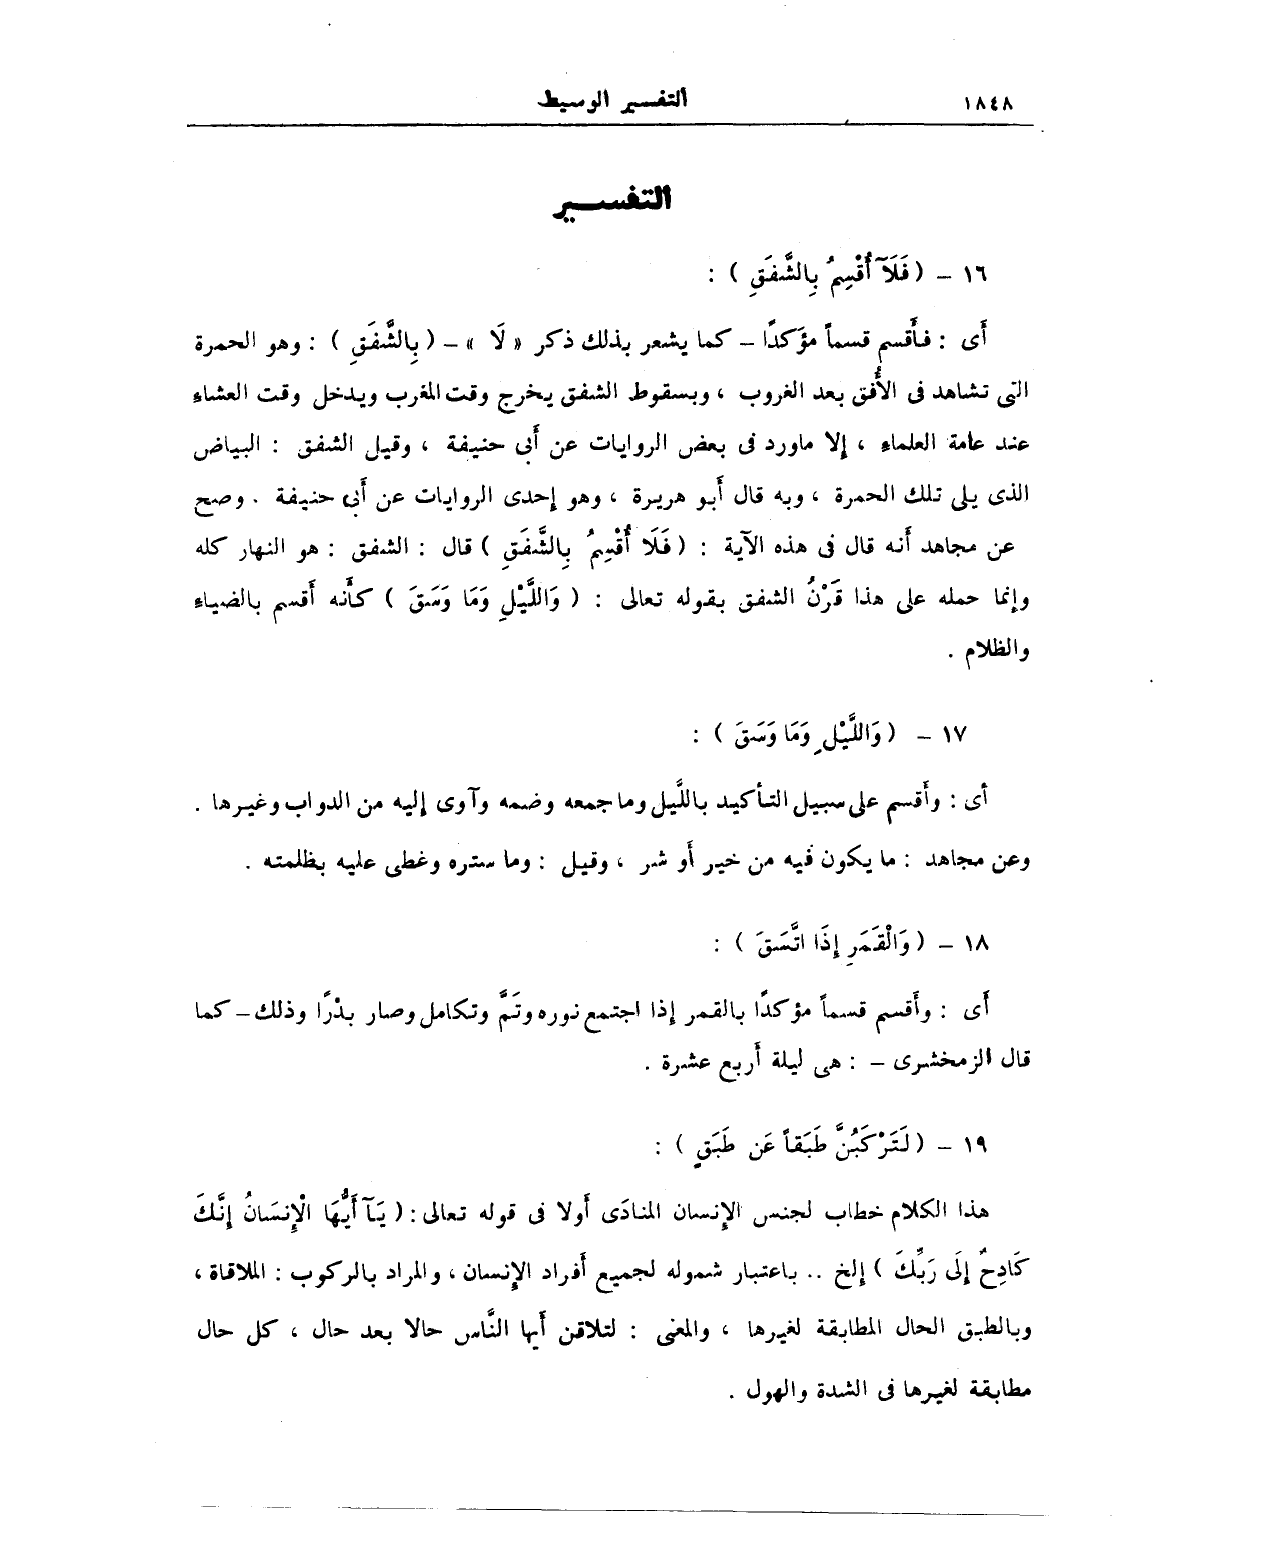 ١٨٤٨
التفسير الوسيط
التفسير
١٦ - ( فَلَآ أُقْسِمُ بِالشَّفَقِ ) :
أى : فأُقسم قسماً مؤكدًا - كما يشعر بذلك ذكر « لَا » - ( بِالشَّفَقِ ) : وهو الحمرة
التى تشاهد فى الأُفق بعد الغروب ، وبسقوط الشفق يخرج وقت المغرب ويدخل وقت العشاء
عند عامة العلماء ، إلا ماورد فى بعض الروايات عن أَبى حنيفة ، وقيل الشفق : البياض
الذى يلى تلك الحمرة ، وبه قال أَبو هريرة ، وهو إحدى الروايات عن أَبى حنيفة . وصح
عن مجاهد أَنه قال فى هذه الآية : ( فَلَا أُقْسِمُ بِالشَّفَقِ ) قال : الشفق : هو النهار كله
وإنما حمله على هذا قَرْنُ الشفق بقوله تعالى : ( وَاللَّيْلِ وَمَا وَسَقَ ) كأَنه أَقسم بالضياء
والظلام .
١٧ - ( وَاللَّيْلِ وَمَا وَسَقَ ) :
أى : وأَقسم على سبيل التأكيد باللَّيل وما جمعه وضمه وآوى إليه من الدواب وغيرها .
وعن مجاهد : ما يكون فيه من خير أَو شر ، وقيل : وما ستره وغطى عليه بظلمته .
١٨ - ( وَالْقَمَرِ إِذَا اتَّسَقَ ) :
أَى : وأَقسم قسماً مؤكدًا بالقمر إذا اجتمع نوره وتَمَّ وتكامل وصار بدْرًا وذلك - كما
قال الزمخشرى - : هى ليلة أَربع عشرة .
١٩ - ( لَتَرْكَبُنَّ طَبَقاً عَن طَبَقٍ ) :
هذا الكلام خطاب لجنس الإِنسان المنادَى أَولا فى قوله تعالى : ( يَآ أَيُّهَا الْإِنسَانُ إِنَّكَ
كَادِحٌ إِلَى رَبِّكَ ) إلخ .. باعتبار شموله لجميع أَفراد الإِنسان ، والمراد بالركوب : الملاقاة ،
وبالطبق الحال المطابقة لغيرها ، والمعنى : لتلاقن أَيها النَّاس حالا بعد حال ، كل حال
مطابقة لغيرها فى الشدة والهول .